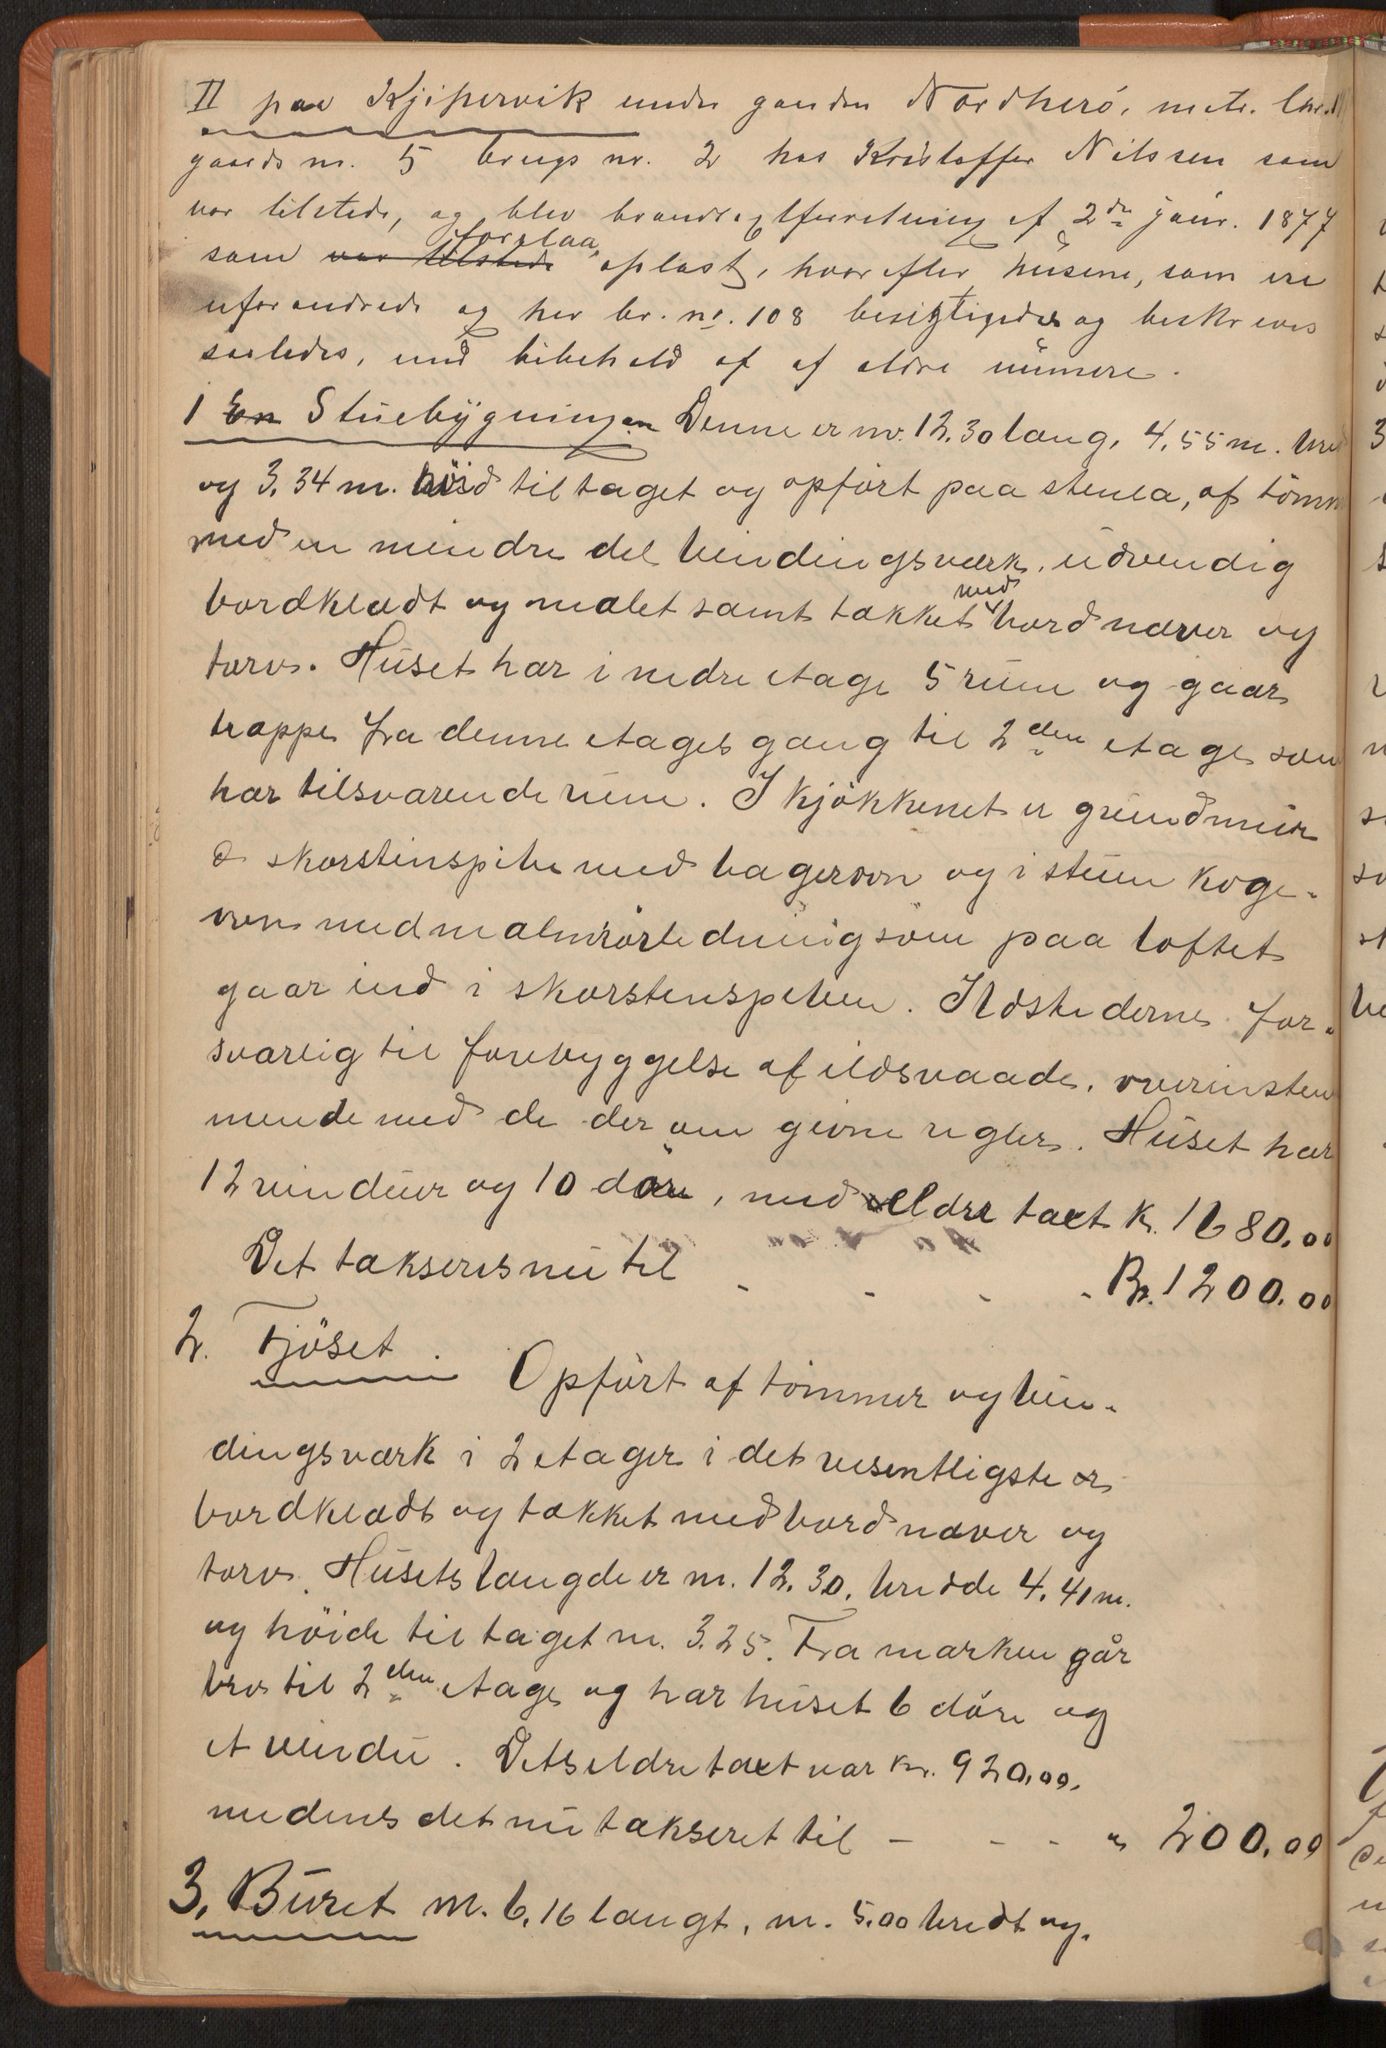 II paa Kjipervik under gaarden Nordherö, matr.
gaards nr. 5 brugs nr. 2 hos Kristoffer Nilssen som
var tilstede, og blev brandtaxtforretning af 2de janr. 1877
som var tilstede forelaa oplæst, hvorefter husene, som ere
uforandrede og har br. nr. 108 besigtigedes og beskreves
saaledes, med bibehold af af ældre numere.
1 En Stuebygningen Denne er m. 12.30 lang, 4.55 m. bred
og 3.34 m. høid til taget og opført paa stenla, af tømm
med en mindre del bindingsværk, udvendig
bordklædt og malet samt tækket med bord næver og
torv. Huset har i nedre etage 5 rum og gaar
trappe fra denne etages gang til 2den etage som
har tilsvarende rum. I kjøkkenet er grundmur
et skorstenspibe med bagerovn og i stuen koge-
ovn med malmrørledning som paa loftet
gaar ind i skorstenspiben. Ildstederne for-
svarlig til forebyggelse af ildsvaade, overenstem
mende med de derom givne regler. Huset har
12 vinduer og 10 døre, med ældre taxt k. 1680.00
Det takseres nu til - - - - Kr. 1200.00
2. Fjöset. Opført af tømmer og bin-
dingsværk i 2 etager i det vesentligste er
bordklædt og tækket med bord næver og
torv. Husets længde er m. 12.30, bredde 4.41 m.
og høide til taget m. 3.25. Fra marken går
bro til 2den etage og har huset 6 døre og
et vindu. Dets ældre taxt var kr. 920.00.
medens det nu takseret til - - - " 200.00
3. Buret m. 6.16 langt, m. 5.00 bredt og.